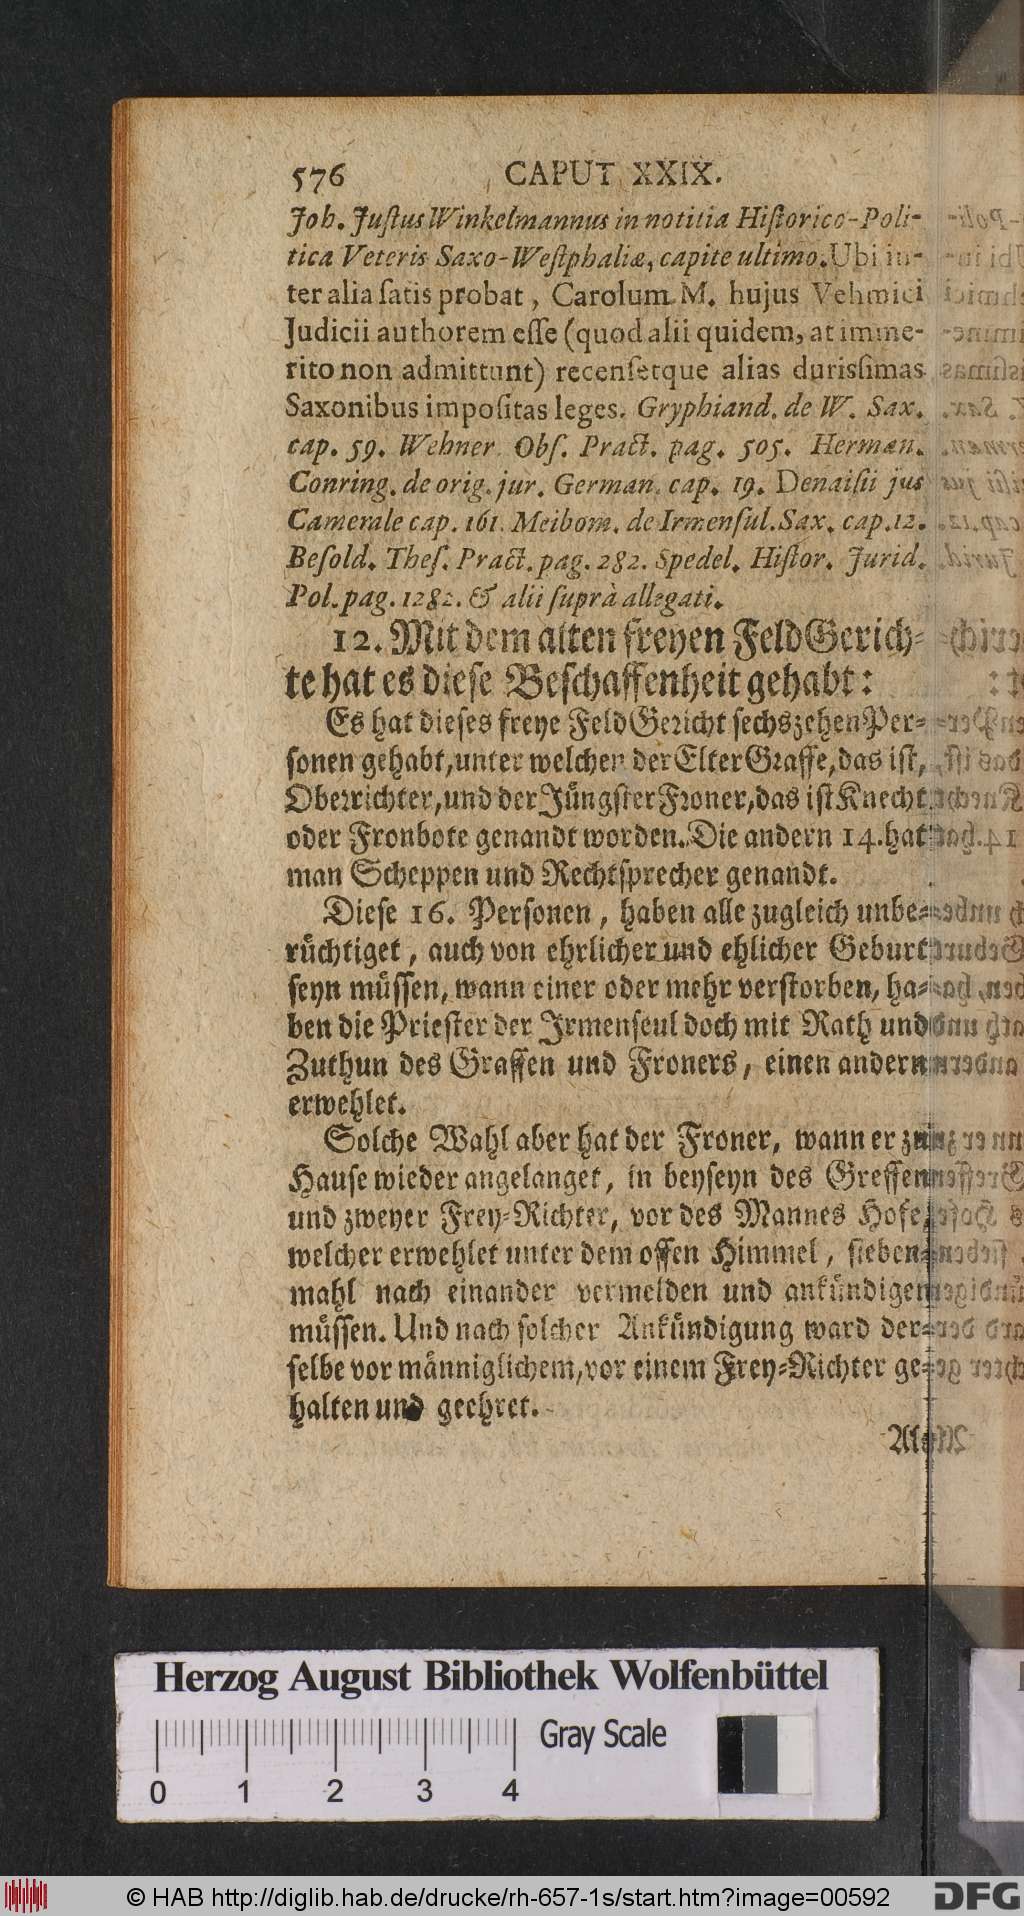 576 CAPUT XXIX.
Joh. Juſtus Winkelmannus in notitia Hiſtorico-Poli-
tica Veteris Saxo-Weſtphaliæ, capite ultimo. Ubi in-
ter alia ſatis probat, Carolum M. hujus Vehmici
Judicii authorem eſſe (quod alii quidem, at imme-
rito non admittunt) recenſetque alias durisſimas
Saxonibus impoſitas leges. Gryphiand. de W. Sax.
cap. 59. Wehner Obſ. Pract. pag. 505. Herman.
Conring. de orig. jur. German. cap. 19. Denaiſii jus
Camerale cap. 161. Meibom. de Irmenſul. Sax. cap. 12.
Beſold. Theſ. Pract. pag. 282. Spedel. Hiſtor. Jurid.
Pol. pag. 1282. & alii ſuprà allegati.
12. Mit dem alten freyen Feld Gerich-
te hat es dieſe Beſchaffenheit gehabt:
Es hat dieſes freye Feld Gericht ſechszehen Per-
ſonen gehabt, unter welchen der Elter Graffe, das iſt,
Oberrichter, und der Jüngſter Froner, das iſt Knecht
oder Fronbote genandt worden. Die andern 14. hat
man Scheppen und Rechtſprecher genandt.
Dieſe 16. Perſonen, haben alle zugleich unbe-
rüchtiget, auch von ehrlicher und ehlicher Geburt
ſeyn müſſen, wann einer oder mehr verſtorben, ha-
ben die Prieſter der Irmenſeul doch mit Rath und
Zuthun des Graffen und Froners, einen andern
erwehlet.
Solche Wahl aber hat der Froner, wann er zu
Hauſe wieder angelanget, in beyſeyn des Greffen
und zweyer Frey-Richter, vor des Mannes Hofe,
welcher erwehlet unter dem offen Himmel, ſieben-
mahl nach einander vermelden und ankündigen
müſſen. Und nach ſolcher Ankündigung ward der-
ſelbe vor männiglichem, vor einem Frey-Richter ge-
halten und geehret.
Herzog August Bibliothek Wolfenbüttel
Gray Scale
0 1 2 3 4
© HAB http://diglib.hab.de/drucke/rh-657-1s/start.htm?image=00592
DFG